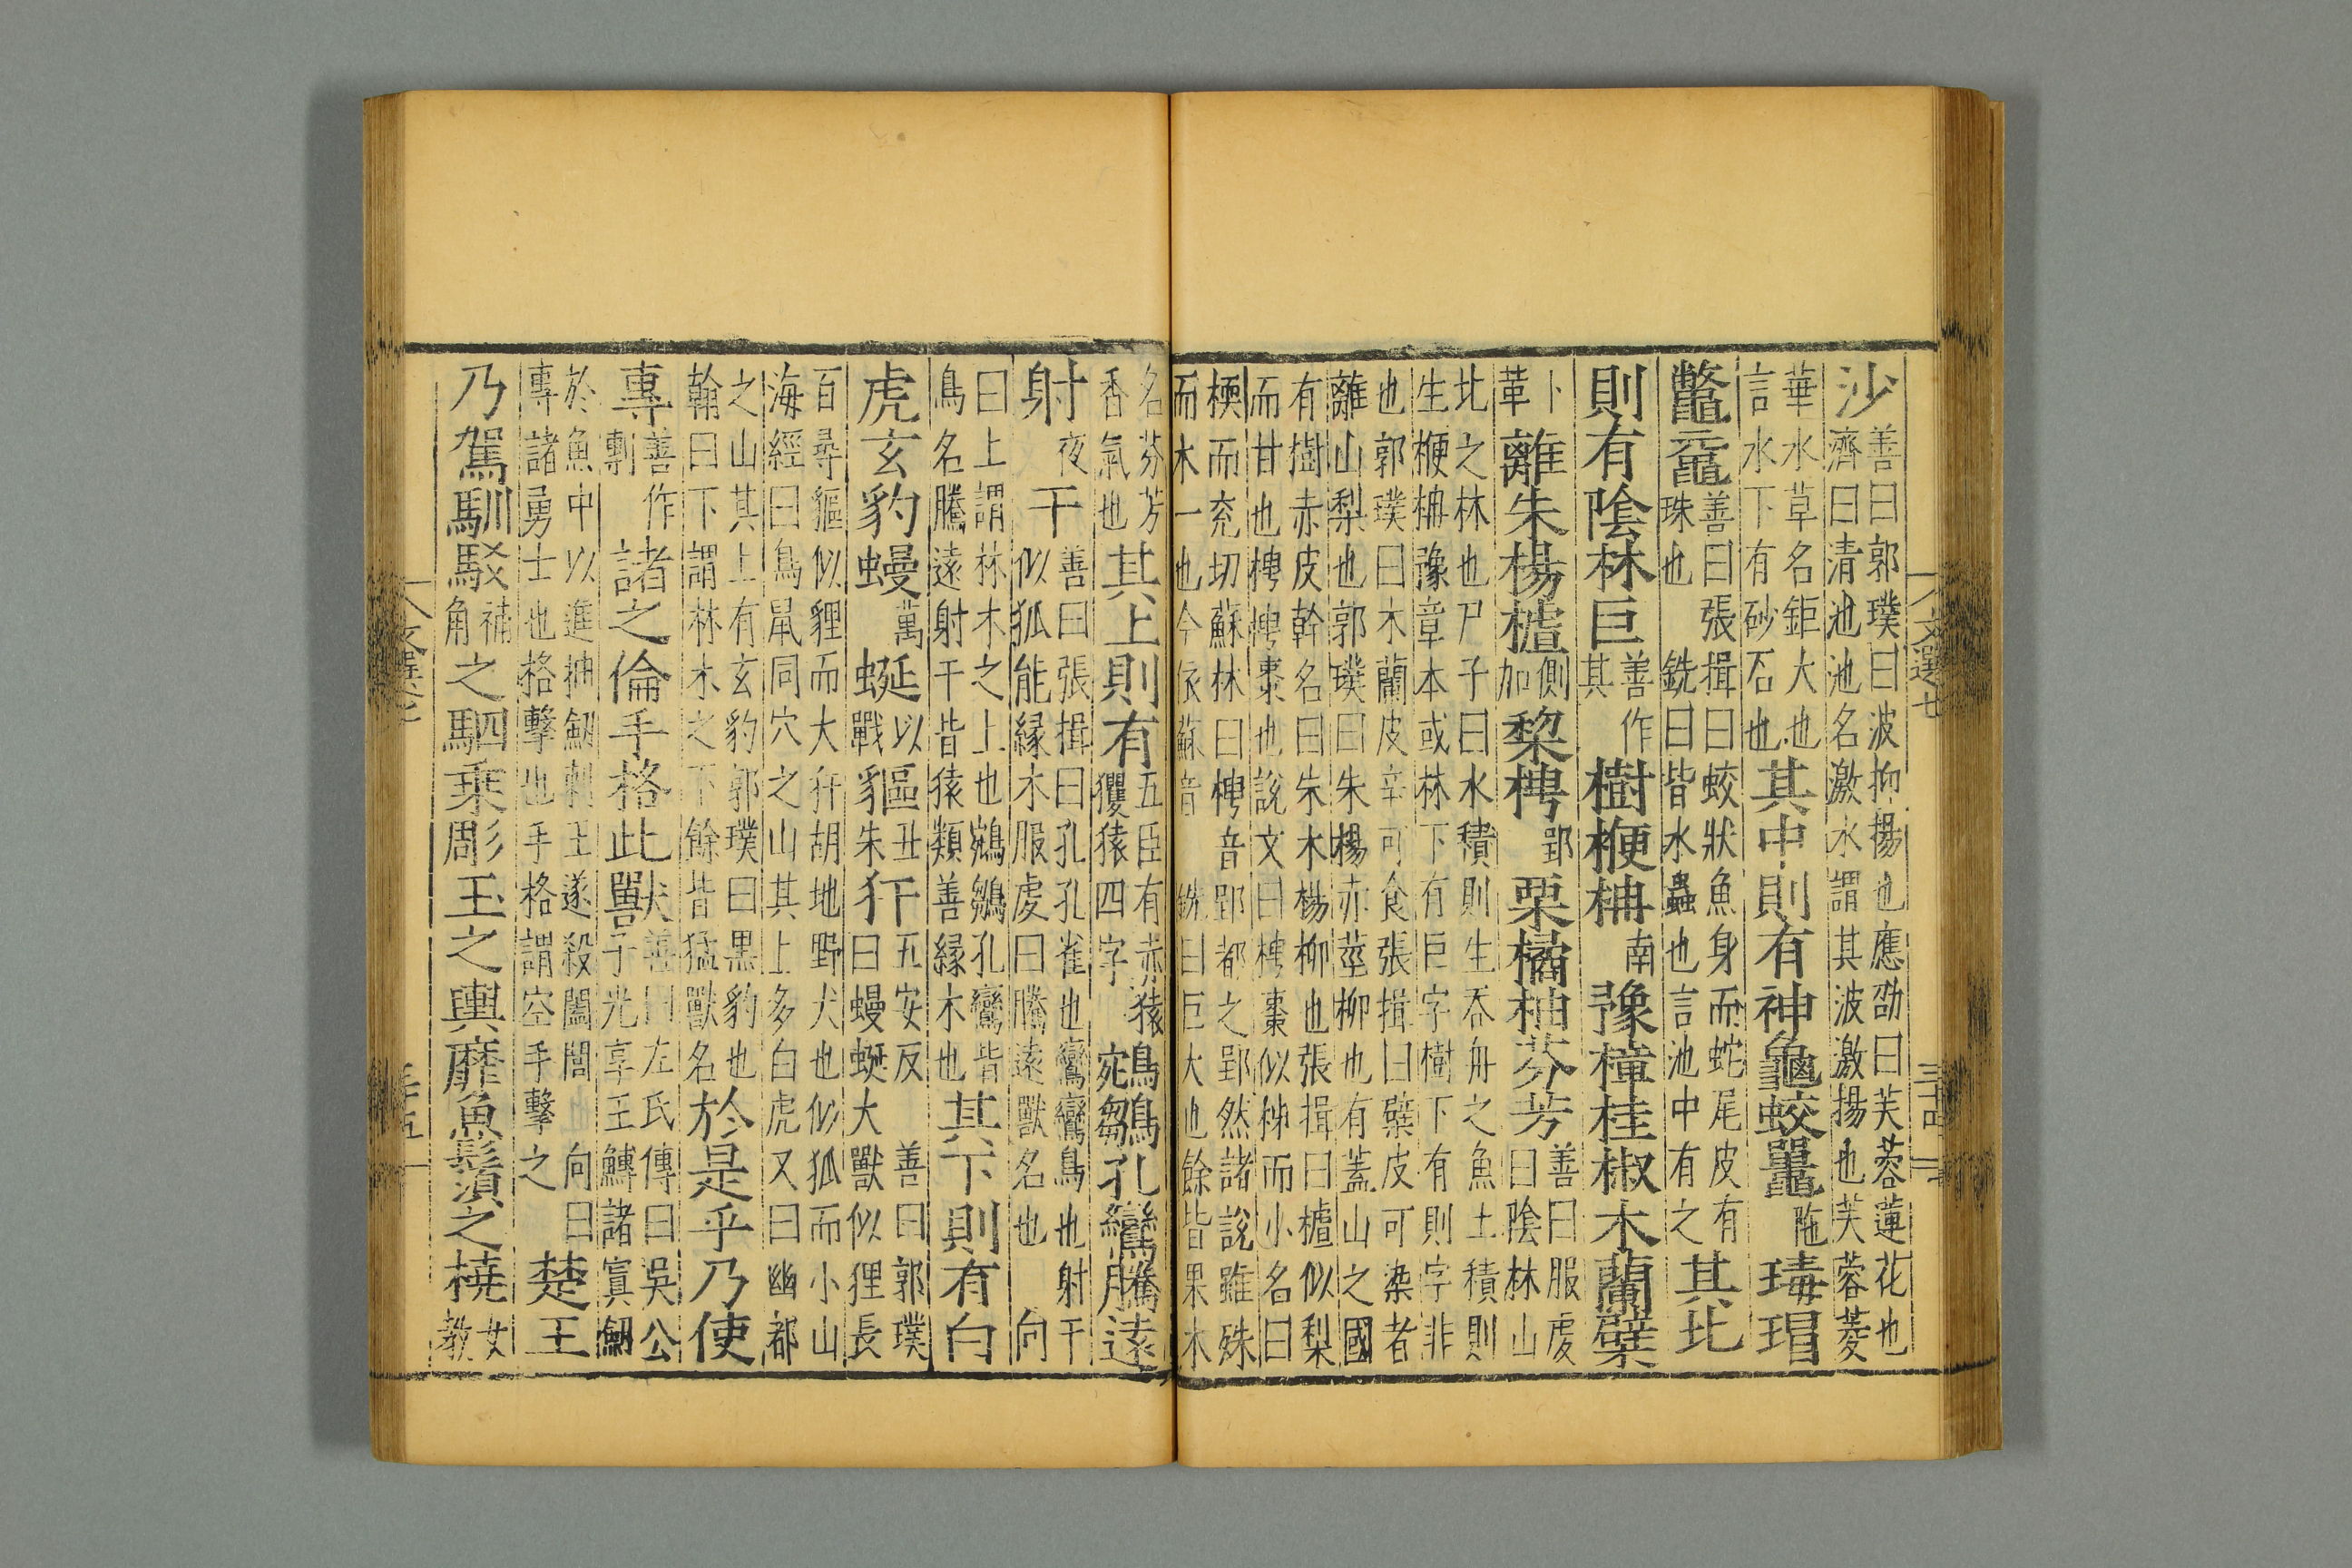 沙善曰郭璞曰波抑揚也應劭曰芙蓉蓮花也
濟曰清池池名激水謂其波激揚也芙蓉菱
華水草名鉅大也
言水下有砂石也其中則有神龜蛟鼉陁瑇瑁
鼈黿善曰張揖曰蛟狀魚身而蛇尾皮有
珠也銑曰皆水蟲也言池中有之其北
則有陰林巨善作其樹楩柟南豫樟桂椒木蘭蘗
卜革離朱楊樝側加棃梬郢栗橘柚芬芳善曰服虔
曰陰林山
北之林也尸子曰水積則生吞舟之魚土積則
生楩柟豫章本或林下有巨字樹下有則字非
也郭璞曰木蘭皮辛可食張揖曰蘗皮可染者
離山梨也郭璞曰朱楊赤莖柳也有蓋山之國
有樹赤皮幹名曰朱木楊柳也張揖曰樝似梨
而甘也梬梬棗也說文曰梬棗似柹而小名曰
㮕而兖切蘇林曰梬音郢都之郢然諸說雖殊
而木一也今依蘇音銑曰巨大也餘皆果木
文選七
三十四
名芬芳
香氣也其上則有五臣有赤猿
玃猿四字鵷鶵孔鸞騰遠
射夜干善曰張揖曰孔孔雀也鸞鸞鳥也射干
似狐能緣木服虔曰騰遠獸名也向
曰上謂林木之上也鵷鶵孔鸞皆
鳥名騰遠射干皆猿類善緣木也其下則有白
虎玄豹蟃萬蜒以戰貙丑朱犴五安反善曰郭璞
曰蟃蜒大獸似狸長
百尋貙似貍而大犴胡地野犬也似狐而小山
海經曰鳥鼠同穴之山其上多白虎又曰幽都
之山其上有玄豹郭璞曰黑豹也
翰曰下謂林木之下餘皆猛獸名於是乎乃使
專善作剸諸之倫手格此獸善曰左氏傳曰吳公
子光享王鱄諸寘劒
於魚中以進抽劒刺王遂殺闔閭也向曰
專諸勇士也格擊也手格謂空手擊之楚王
乃駕馴駁補角之駟乘彫玉之輿靡魚鬚之橈女教
文選七
三十五